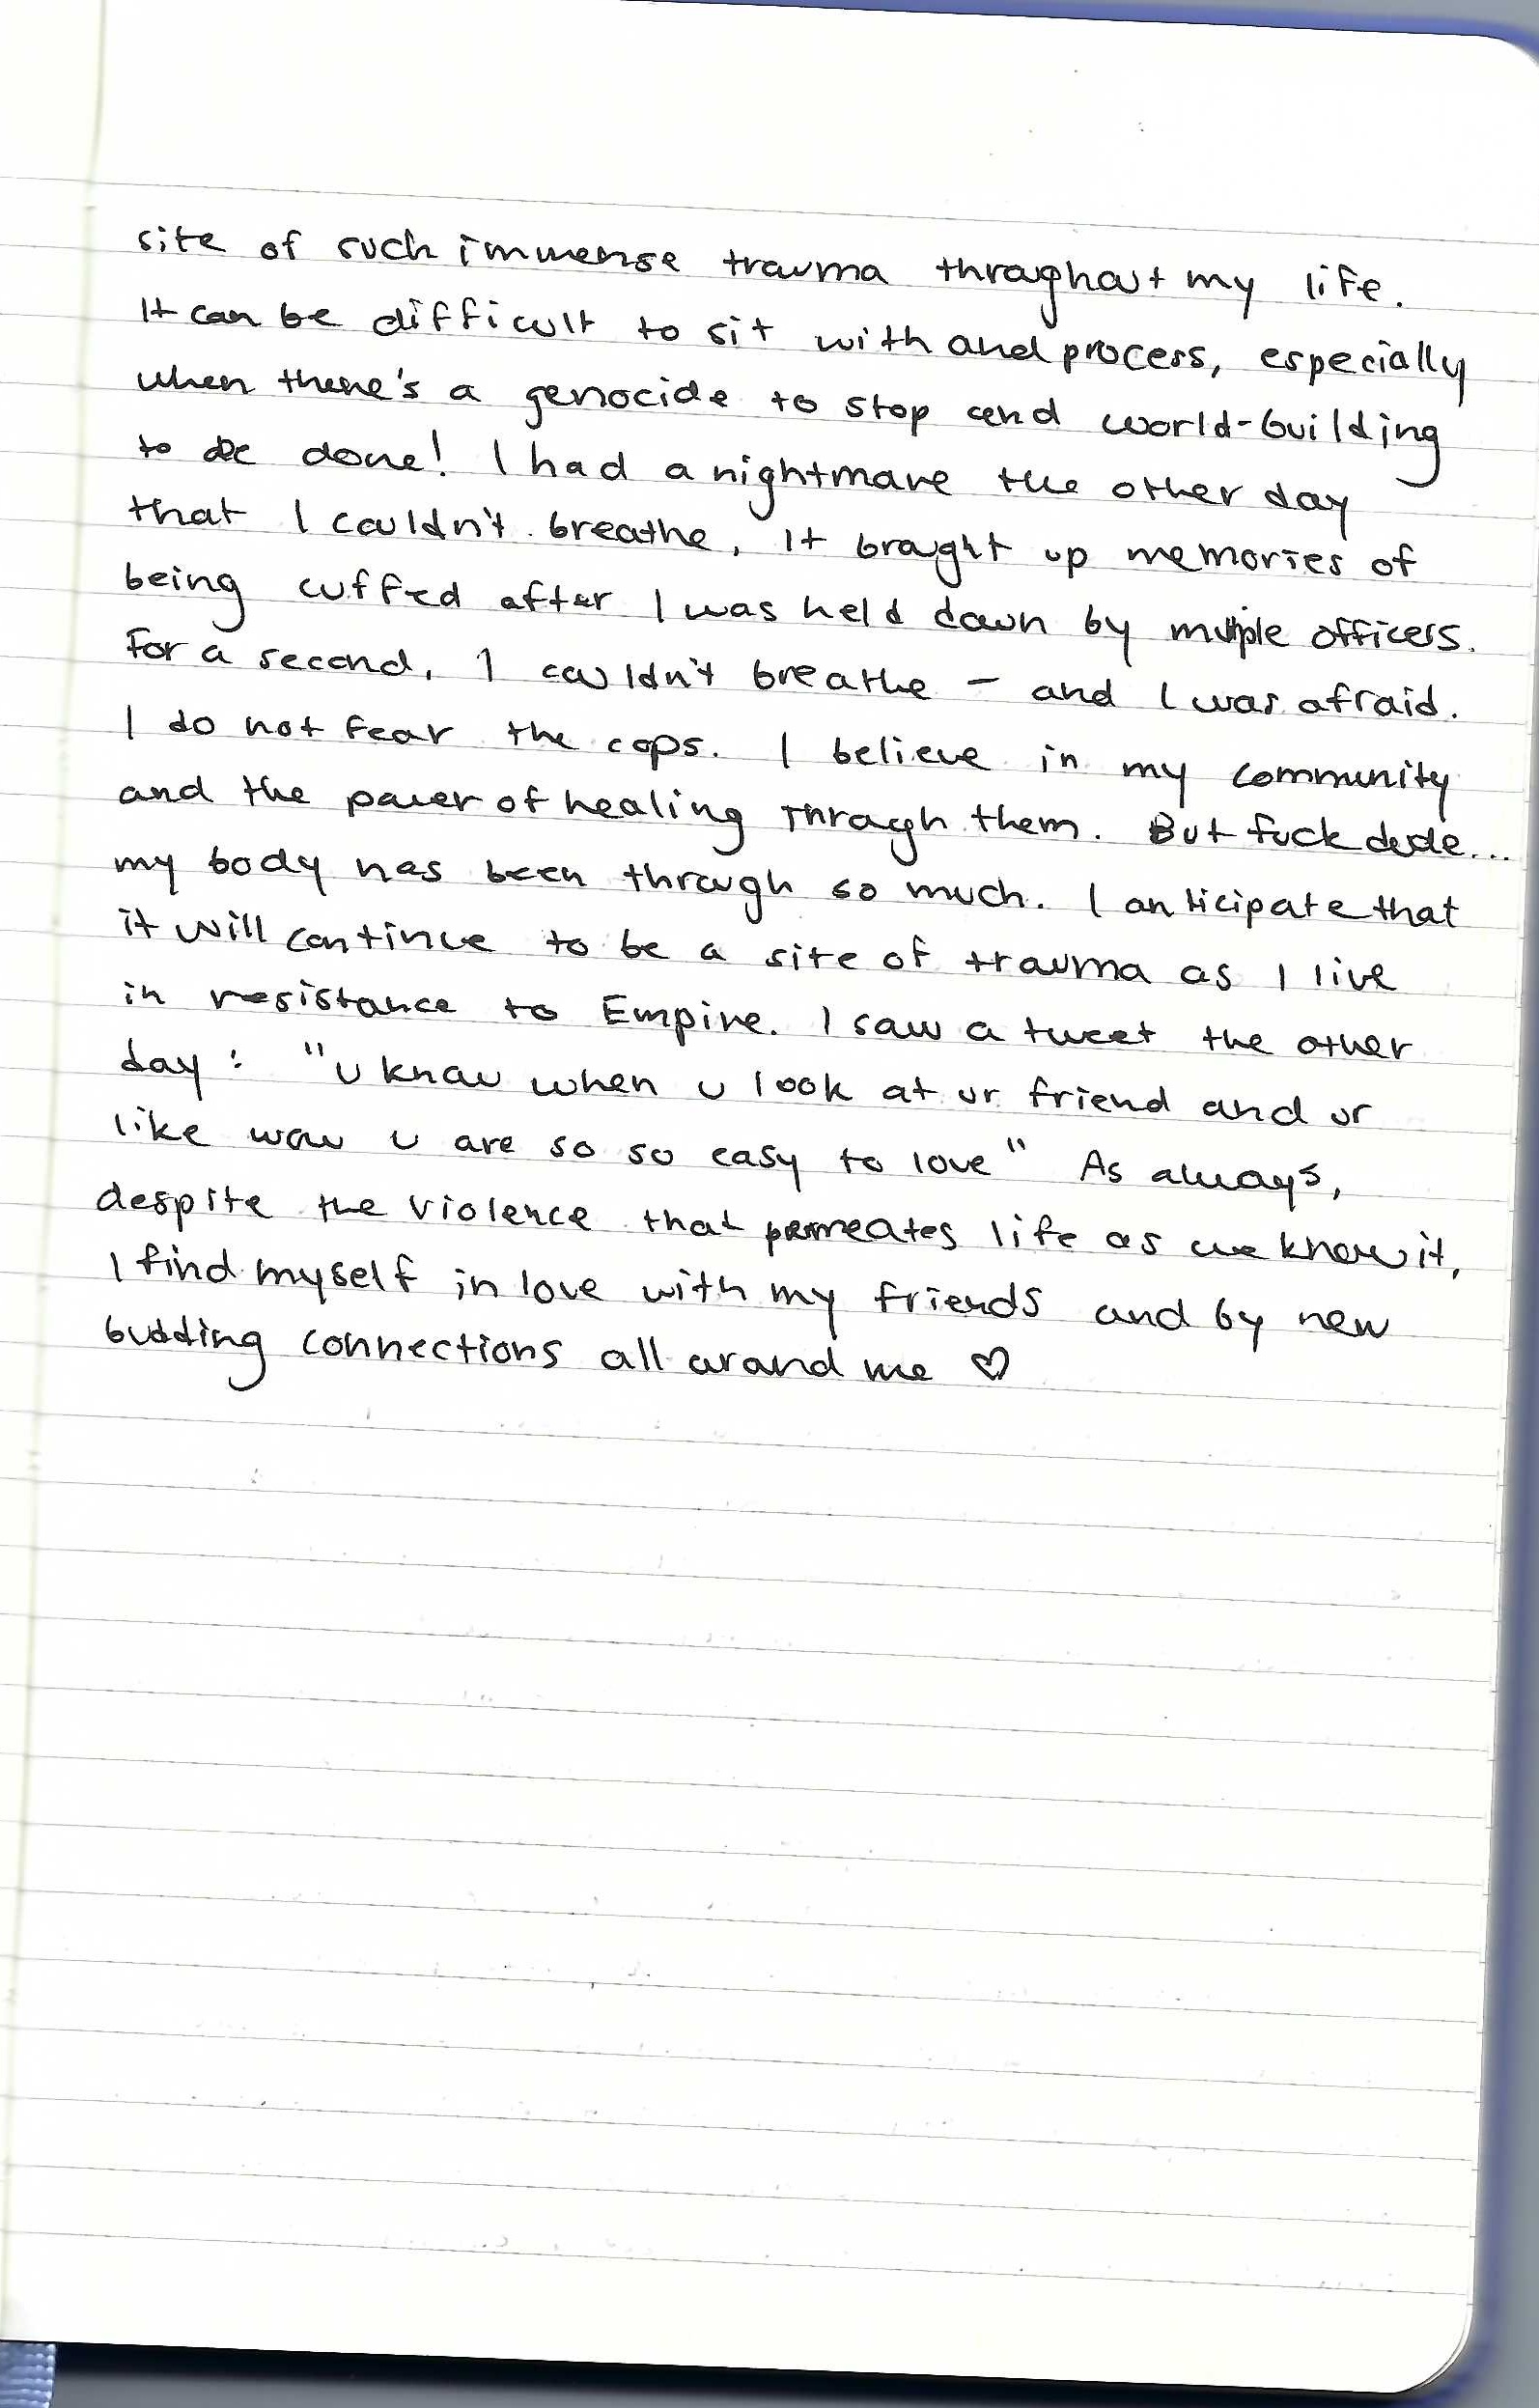 site of such immense trauma throughout my life.
It can be difficult to sit with and process, especially
when there's a genocide to stop and world-building
to be done! I had a nightmare the other day
that I couldn't breathe, it brought up memories of
being cuffed after I was held down by multiple officers.
For a second, I couldn't breathe – and I was afraid.
I do not fear the cops. I believe in my community
and the power of healing through them. But fuck dude...
my body has been through so much. I anticipate that
it will continue to be a site of trauma as I live
in resistance to Empire. I saw a tweet the other
day: "u know when u look at ur friend and ur
like wow u are so so easy to love" As always,
despite the violence that permeates life as we know it,
I find myself in love with my friends and by new
budding connections all around me ♡